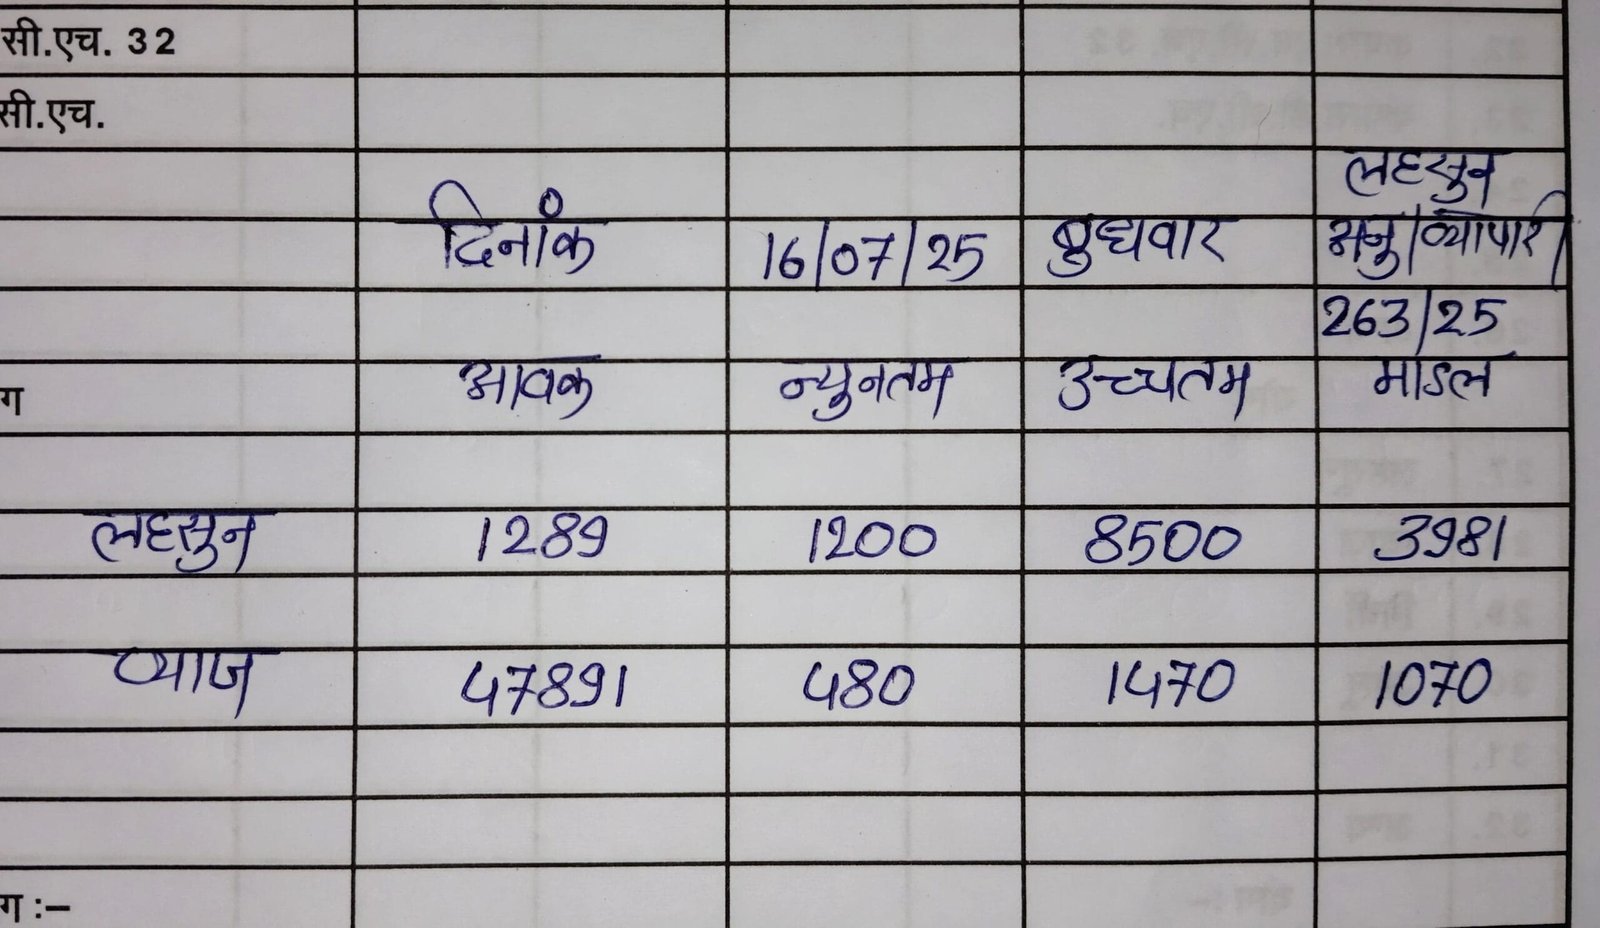 सी.एच. 32
सी.एच.
लहसुन
दिनांक 16/07/25 बुधवार अनु/व्यापारी
263/25
ग आवक न्युनतम उच्चतम माडल
लहसुन 1289 1200 8500 3981
प्याज 47891 480 1470 1070
ग :–